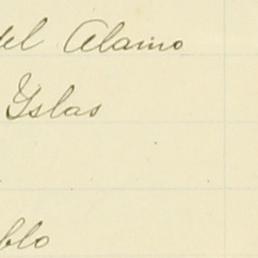 del Alamo
Yslas
blo